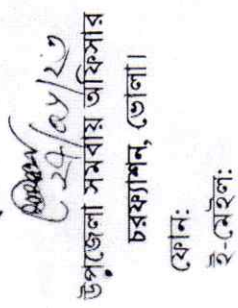 উপজেলা সমবায় অফিসার
চরফ্যাশন, ভোলা।
ফোন:
ই-মেইল: